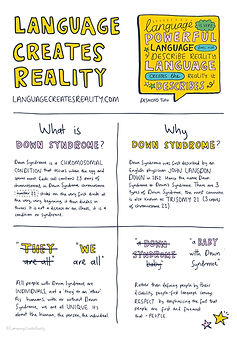 LANGUAGE
CREATES
REALITY
LANGUAGECREATESREALITY.COM
language is very
POWERFUL
LANGUAGE does not
DESCRIBE REALITY
LANGUAGE
CREATES the REALITY it
DESCRIBES
DESMOND TUTU
What is
DOWN SYNDROME?
Down Syndrome is a CHROMOSOMAL
CONDITION that occurs when the egg and
sperm meet. Each cell contains 23 pairs of
chromosomes; in Down Syndrome chromosome
21
the very very beginning, it then divides so
there it is not a disease or an illness, it is a
condition or syndrome.
Why
DOWN SYNDROME?
Down Syndrome was first described by an
English physician JOHN LANGDON
DOWN in
Down Syndrome is Down's Syndrome. There are 3
types of Down Syndrome, the most common
is also known as TRISOMY 21 (3 copies
of chromosome 21)
"THEY
are all"
"WE
are all"
All people with Down Syndrome are
INDIVIDUALS, not a 'they' to an 'other'.
As humans, with or without Down
Syndrome, we are all UNIQUE. It's
about the human, the person, the individual.
"a DOWN
SYNDROME
baby"
"a BABY
with Down
Syndrome"
Rather than defining people by their
disability, people-first language conveys
RESPECT by emphasising the fact that
people are first and foremost
that - PEOPLE.